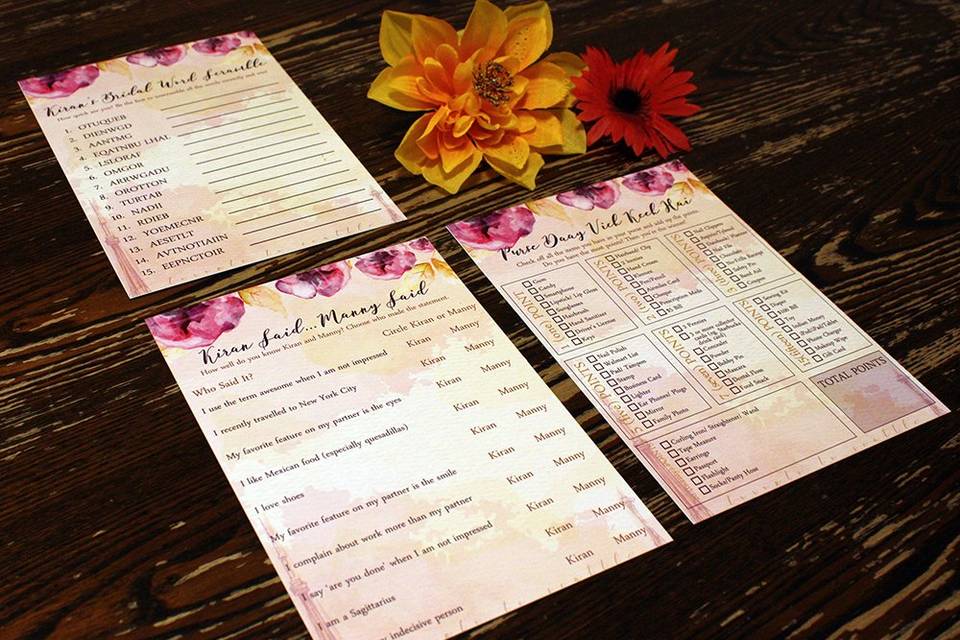 Kiran's Bridal Word Scramble
How quick are you? Be the first to unscramble all the words correctly and win!
1. OTUQUEB
2. DIENWGD
3. AANTMG
4. EQATNBU LHAL
5. LSLORAF
6. OMGOR
7. ARRWGADU
8. OROTTON
9. TURTAB
10. NADII
11. RDIEB
12. YOEMECNR
13. AESETLT
14. AVTNOTIAIIN
15. EEPNCTOIR
Kiran Said...Manny Said
How well do you know Kiran and Manny? Choose who made the statement.
Who Said It? Circle Kiran or Manny
I use the term awesome when I am not impressed Kiran Manny
I recently travelled to New York City Kiran Manny
My favorite feature on my partner is the eyes Kiran Manny
I like Mexican food (especially quesadillas) Kiran Manny
I love shoes Kiran Manny
My favorite feature on my partner is the smile Kiran Manny
I complain about work more than my partner Kiran Manny
I say 'are you done' when I am not impressed Kiran Manny
I am a Sagittarius Kiran Manny
indecisive person
Purse Daay Vich Keeh Hai
Check off all the items you have in your purse and add up the points.
Do you have the most points? Then you're the winner!
Gum
Candy
Smartphone
Lipstick/ Lip Gloss
Sunglasses
Hairbrush
Hand Sanitizer
Driver's License
Keys
Hairband/ Clip
2 Lotions
Hand Cream
Kleenex
Pen/Pencil
Airmiles Card
Charger
Prescription Meds
$5 Bill
POINTS
Nail Clippers
Nail File
Safety Pin
Band Aid
Coupon
Nail Polish
Walmart List
Pad/ Tampon
Stamp
Business Card
Lighter
Ear Phones/ Plugs
Mirror
Family Photo
five POINTS
3 Pennies
drink card)
Concealer
Powder
Bobby Pin
Mascara
Dental Floss
Food Snack
POINTS
Sewing Kit
Diaper
$100 Bill
Toy
Indian Money
iPod/iPad/Tablet
Phone Charger
Makeup Wipe
Gift Card
POINTS
Curling Iron/ Straightener/ Wand
Tape Measure
Earrings
Passport
Flashlight
Socks/Panty Hose
TOTAL POINTS